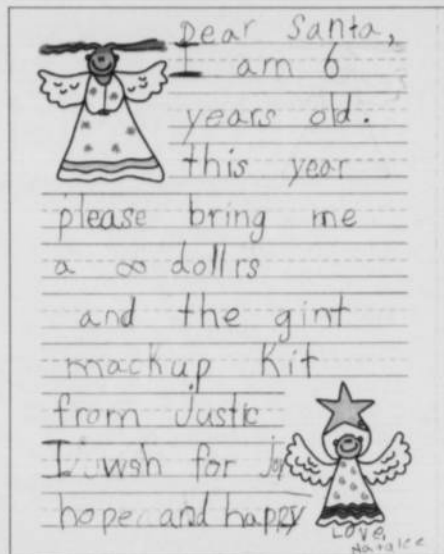 Dear Santa,
I am 6
years old.
this year
please bring me
a ∞ dollrs
and the gint
mackup kit
from Justic
I wsh for joy
hope and happy
Love,
Natalee